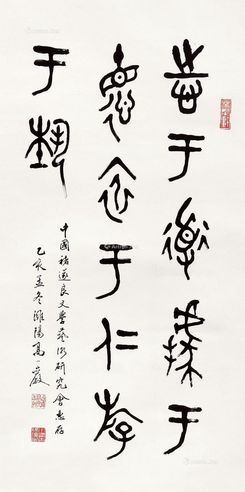 志于道據于
德依于仁游
于埶
中國褚遂良文學藝術研究會惠存
乙亥孟冬濰陽高